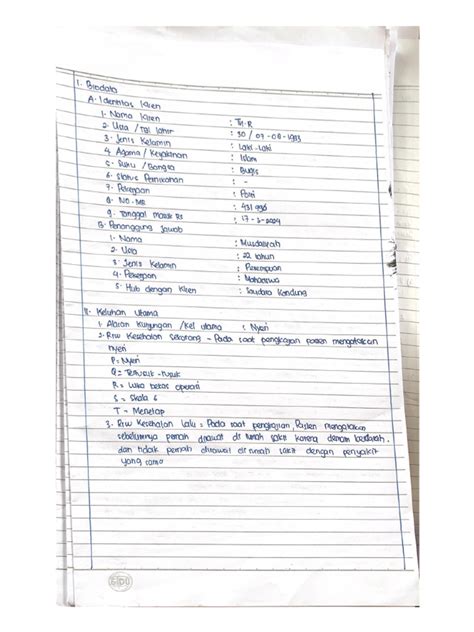 I. Biodata
A. Identitas Klien
1. Nama Klien : Tn. R
2. Usia / Tgl lahir : 30 / 07-08-1993
3. Jenis Kelamin : Laki-Laki
4. Agama / Keyakinan : Islam
5. Suku / Bangsa : Bugis
6. Status Pernikahan : -
7. Pekerjaan : Polri
8. NO. MR : 431
9. Tanggal Masuk Rs : 17-3-2024
B. Penanggung Jawab
1. Nama :
2. Usia : 22 tahun
3. Jenis Kelamin : Perempuan
4. Pekerjaan : Mahasiswa
5. Hub dengan Klien : Saudara Kandung
II. Keluhan Utama
1. Alasan Kunjungan / Kel utama : Nyeri
2. Riw Kesehatan Sekarang = Pada saat pengkajian pasien mengatakan
nyeri
P = Nyeri
Q = Tertusuk-tusuk
R = Luka bekas operasi
S = Skala 6
T = Menetap
3. Riw Kesehatan Lalu = Pada saat pengkajian, Pasien mengatakan
sebelumnya pernah dirawat di rumah sakit karena demam berdarah
dan tidak pernah dirawat di rumah sakit dengan penyakit
yang sama
SIDU